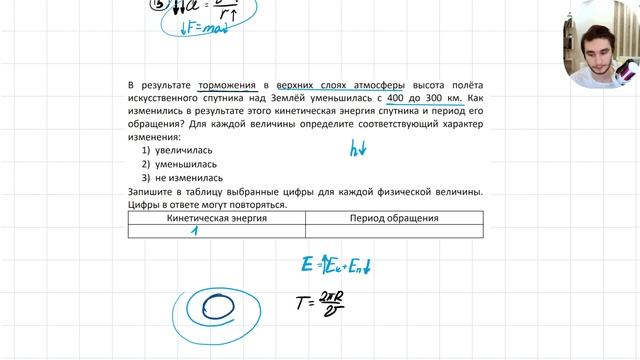 В результате торможения в верхних слоях атмосферы высота полёта
искусственного спутника над Землёй уменьшилась с 400 до 300 км. Как
изменились в результате этого кинетическая энергия спутника и период его
обращения? Для каждой величины определите соответствующий характер
изменения:
1) увеличилась
2) уменьшилась
3) не изменилась
h↓
Запишите в таблицу выбранные цифры для каждой физической величины.
Цифры в ответе могут повторяться.
Кинетическая энергия Период обращения
1
E = ↑Eк + Eп↓
T = 2πR/υ
r↑
↓F = ma↓